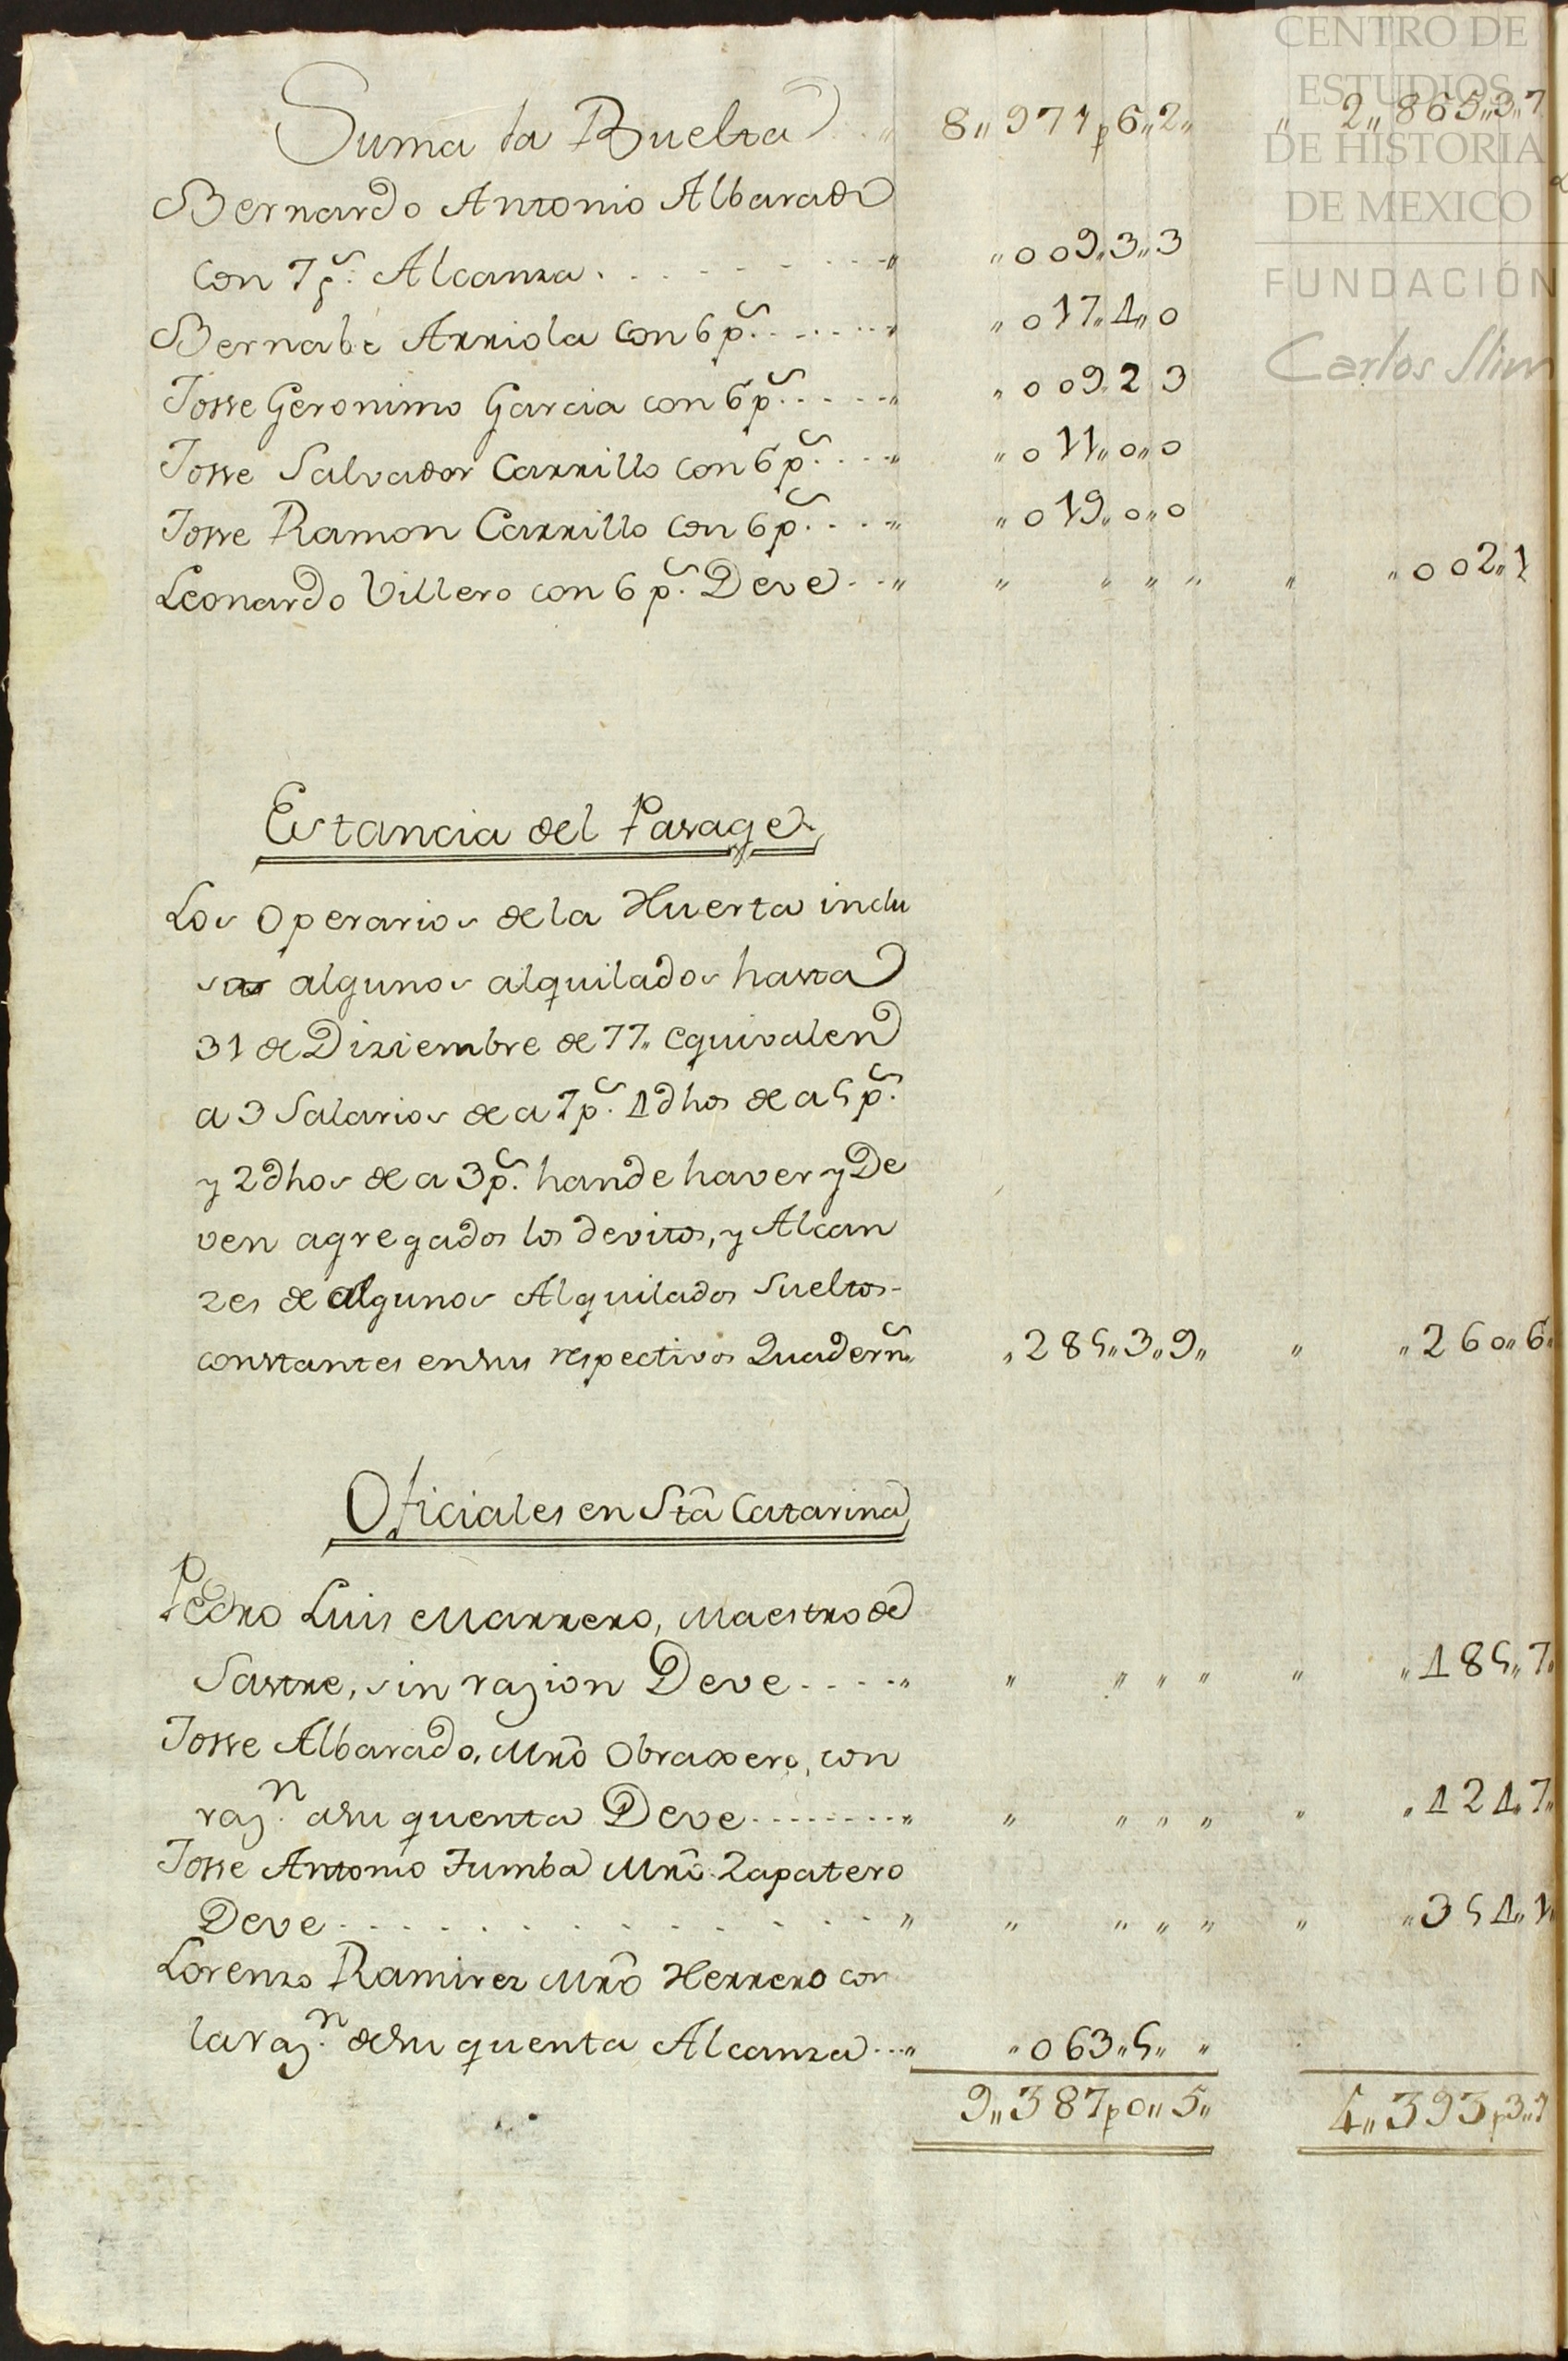 Suma la Buelta „ 8„971p6„2„ „ 2„865„3„7
Bernardo Antonio Albarado
con 7 p.s Alcanza . . . . . . . „ „009„3„3
Bernabe Arriola con 6 p.s . . . . „ „017„4„0
Josse Geronimo Garcia con 6 p.s . . . . „ „009„2„3
Josse Salvador Carrillo con 6 p.s . . . „ „011„0„0
Josse Ramon Carrillo con 6 p.s . . . „ „019„0„0
Leonardo Villero con 6 p.s Deve . . „ „ „ „ „ „ „002„1
Estancia del Pasage
Los Operarios de la Huerta inclu
sos algunos alquilados hasta
31 de Diziembre de 77„ equivalen
a 3 Salarios de a 7 p.s 4 dhos de a 5 p.s
y 2 dhos de a 3 p.s han de haver y De
ven agregados los devitos, y Alcan
zes de algunos Alquilados Sueltos-
constantes en sus respectivos Quadern.s „285„3„9„ „ „260„6„
Oficiales en Sta Catarina
Pedro Luis Marrero, Maestro de
Sastre, sin razion Deve . . . . „ „ „ „ „ „ „485„7„
Josse Albarado, Mrô Obraxero, con
raz.n a su quenta Deve . . . . . . . „ „ „ „ „ „ „424„7„
Josse Antonio Zumba Mrô Zapatero
Deve . . . . . . . . . . . . „ „ „ „ „ „ „354„1
Lorenzo Ramirez Mrô Herrero con
la raz.n de su quenta Alcanza . . . „ „063„5„ „
9„387p0„5„ 4„393p3„9
CENTRO DE
ESTUDIOS
DE HISTORIA
DE MEXICO
FUNDACIÓN
Carlos Slim